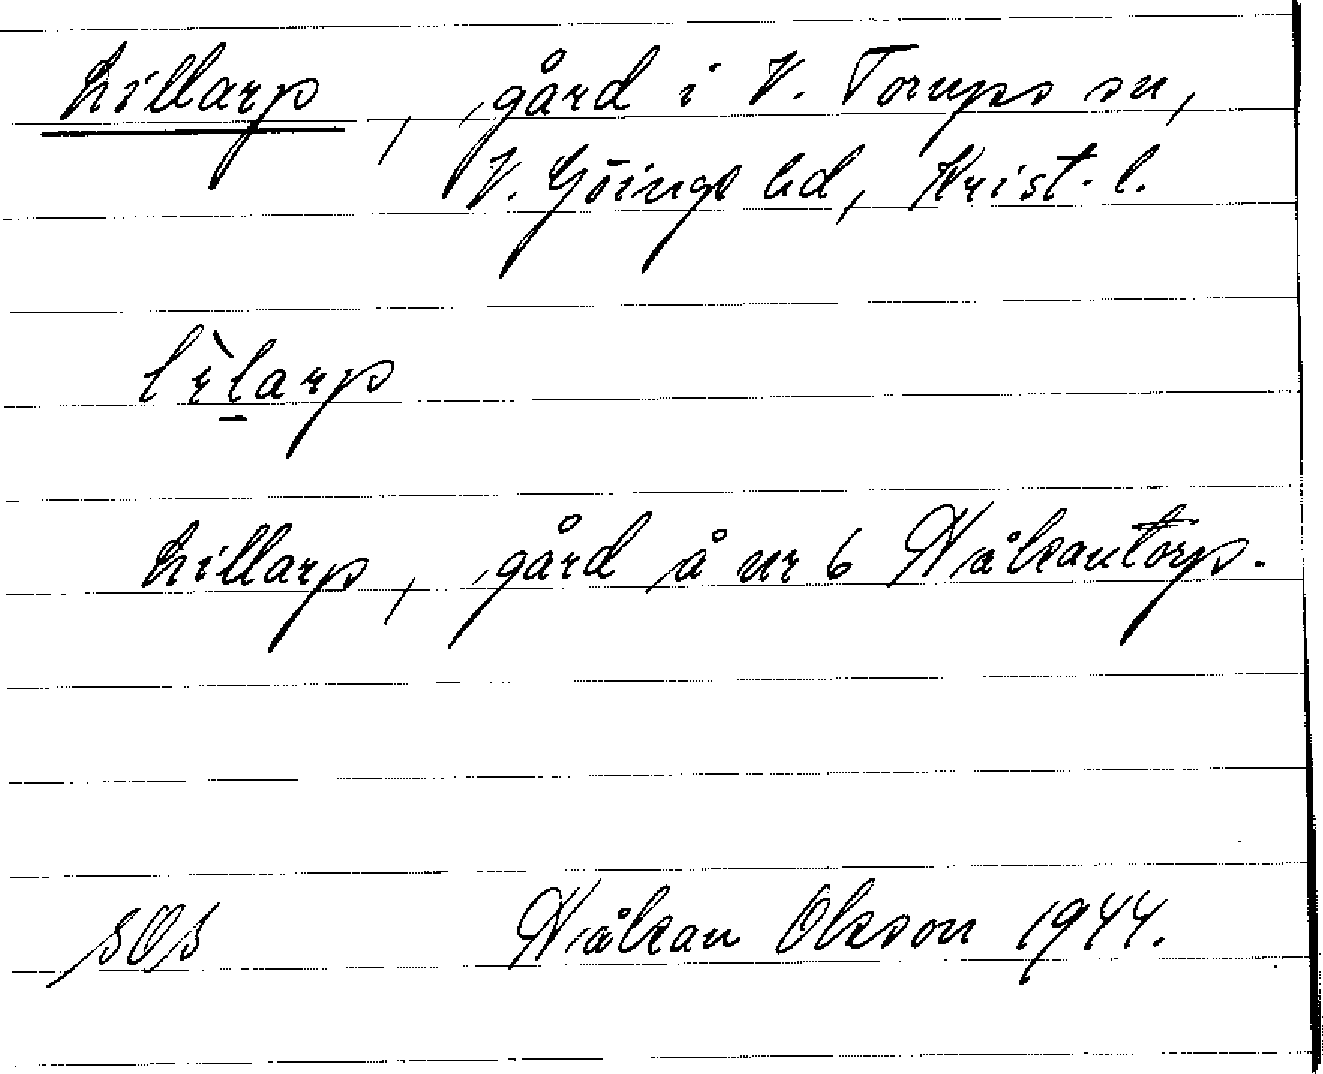 Lillarp, gård i V. Torups sn,
V. Göinge hd, Krist. l.
lìlarp
Lillarp, gård å nr 6 Håkantorp.
SOS Håkan Olsson 1944.